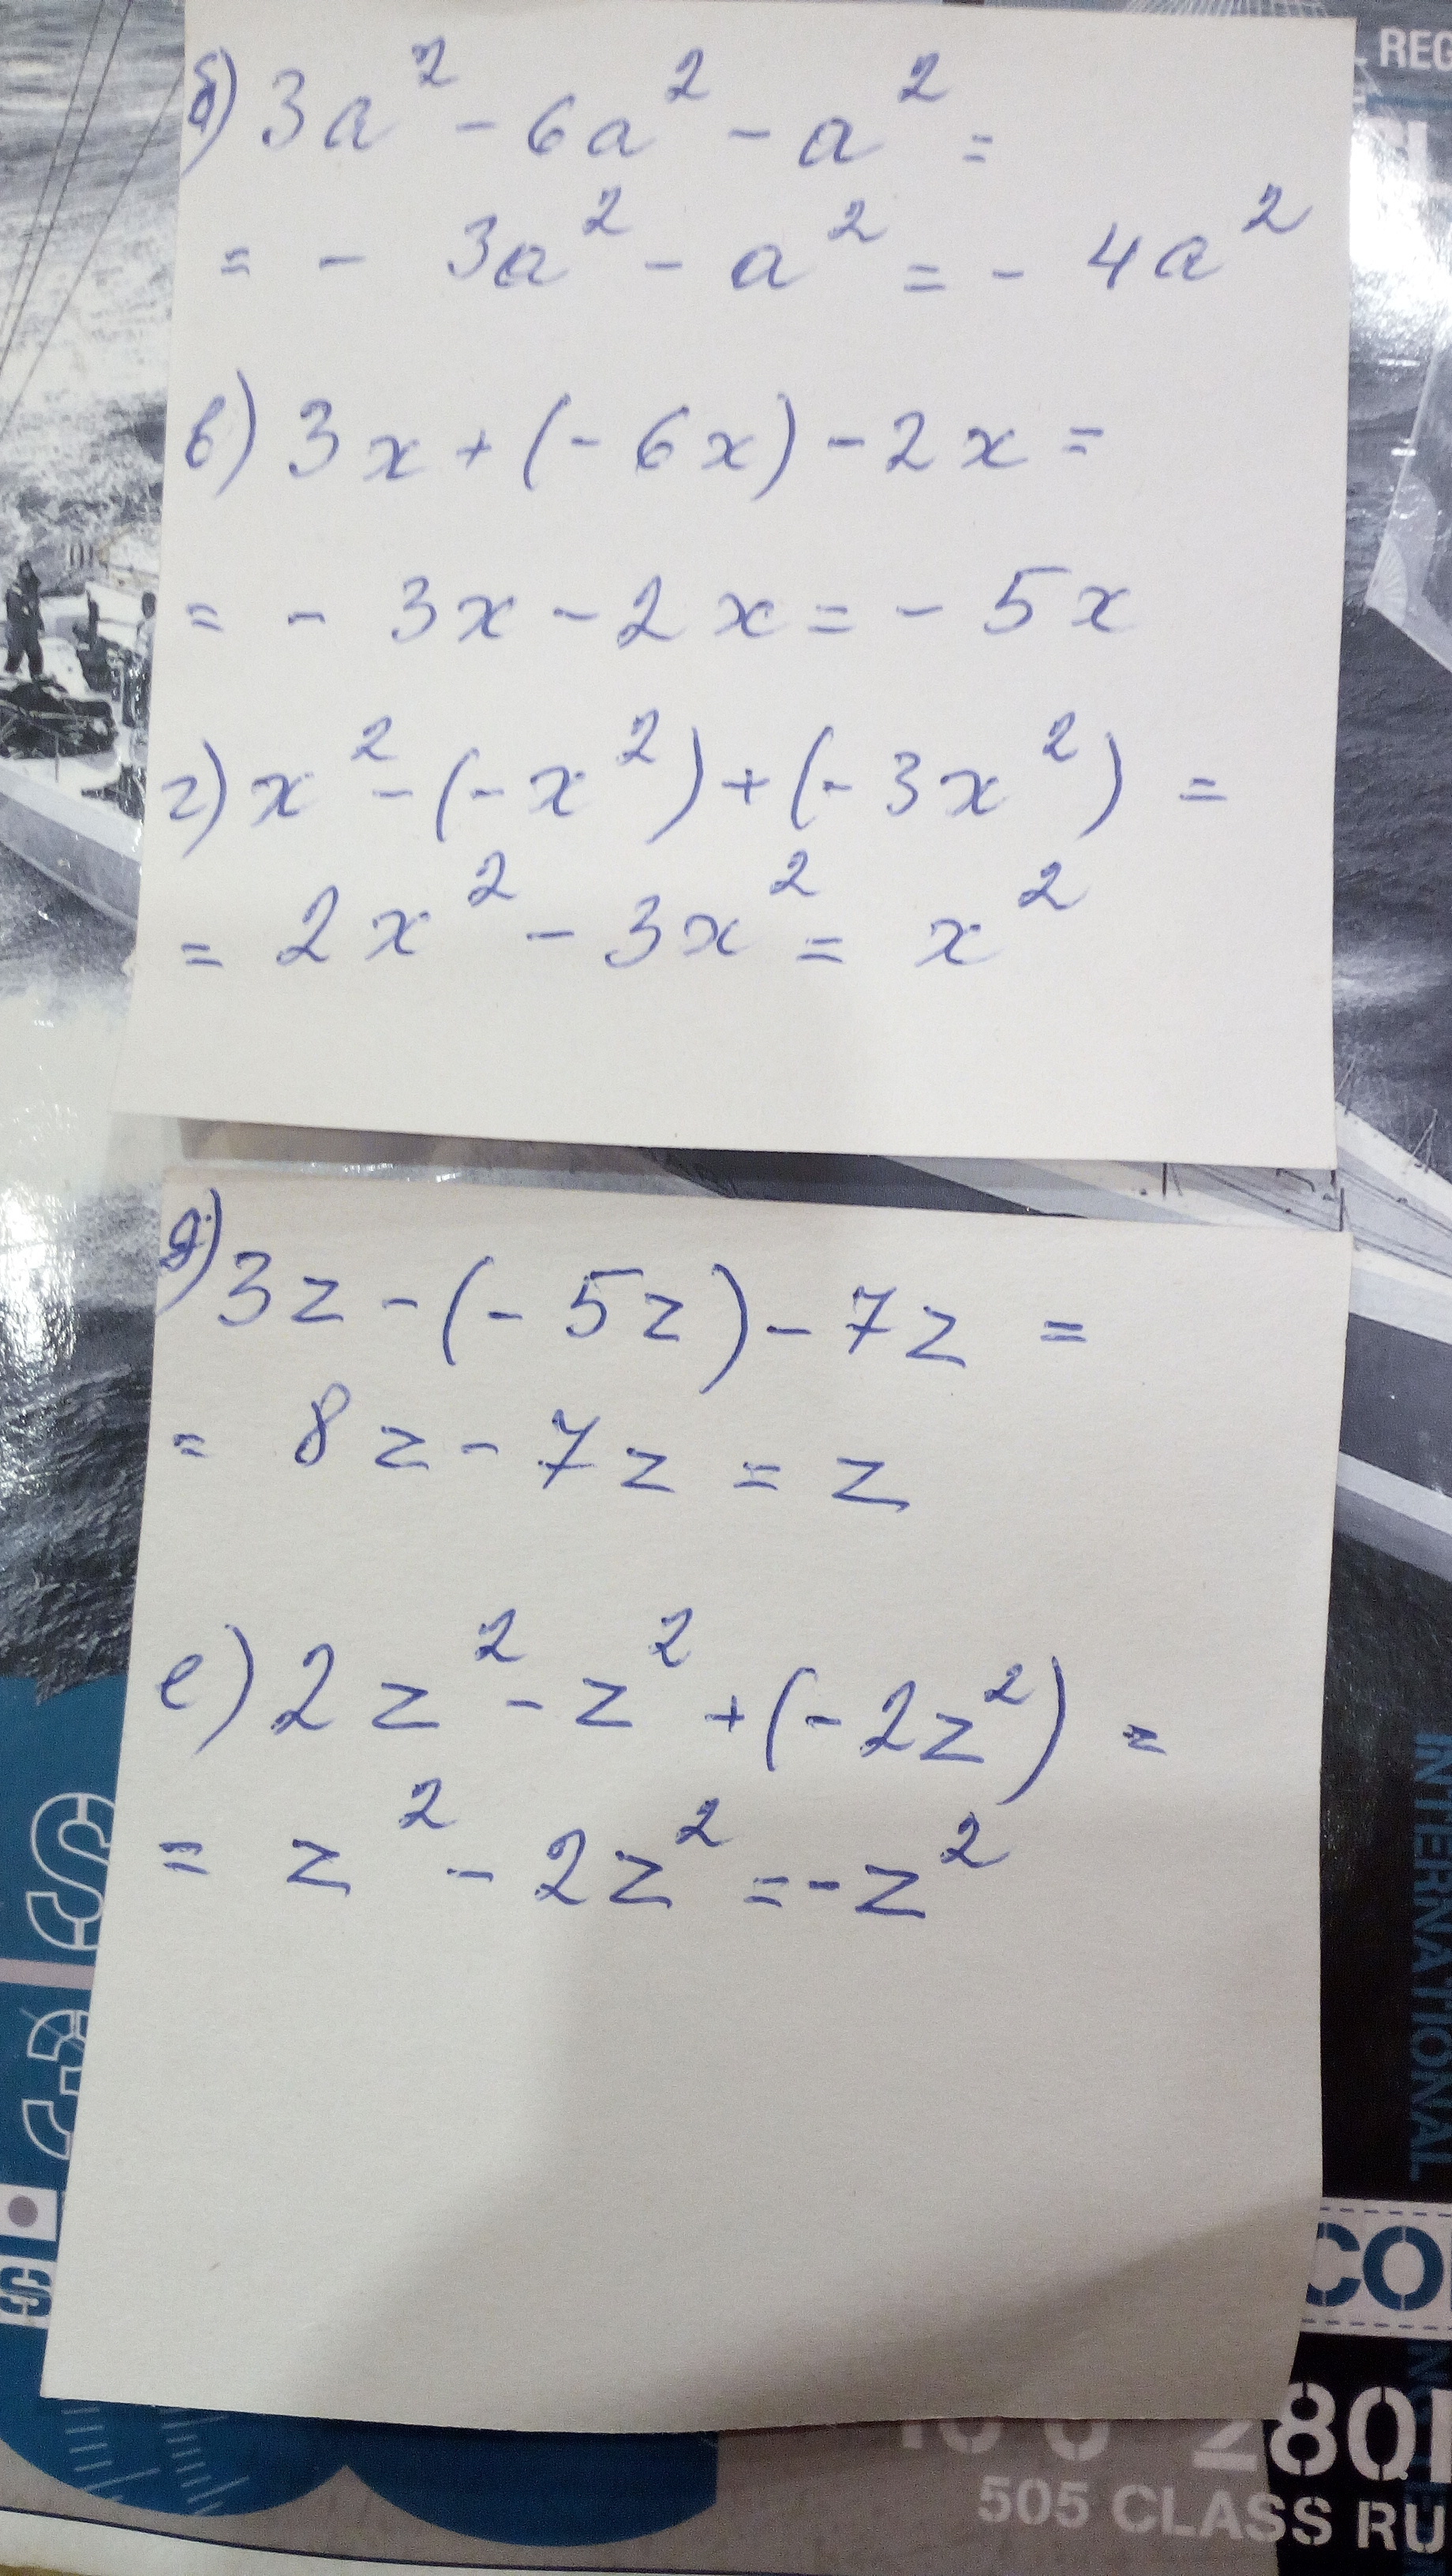 L REG
б) 3a² - 6a² - a² =
= - 3a² - a² = - 4a²
в) 3x + (- 6x) - 2x =
= - 3x - 2x = - 5x
г) x² - (- x²) + (- 3x²) =
= 2x² - 3x² = x²
д) 3z - (- 5z) - 7z =
= 8z - 7z = z
е) 2z² - z² + (- 2z²) =
= z² - 2z² = - z²
INTERNATIONAL
S
S
CO
28Q
505 CLASS RU